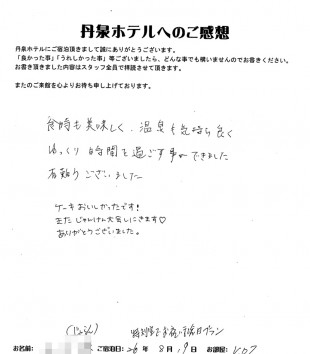 丹泉ホテルへのご感想
丹泉ホテルにご宿泊頂きまして誠にありがとうございます。
「良かった事」「うれしかった事」等ございましたら、どんな事でも構いませんのでお書きください。
お書き頂きました内容はスタッフ全員で拝読させて頂きます。
またのご来館を心よりお待ち申し上げております。
食事も美味しく、温泉も気持ち良く
ゆっくり時間を過ごす事ができました
有難うございました
ケーキおいしかったです!
またじゃんけん大会しにきます♡
ありがとうございました。
プラン
お名前: ご宿泊日: 26年 8月 19日 お部屋: 207